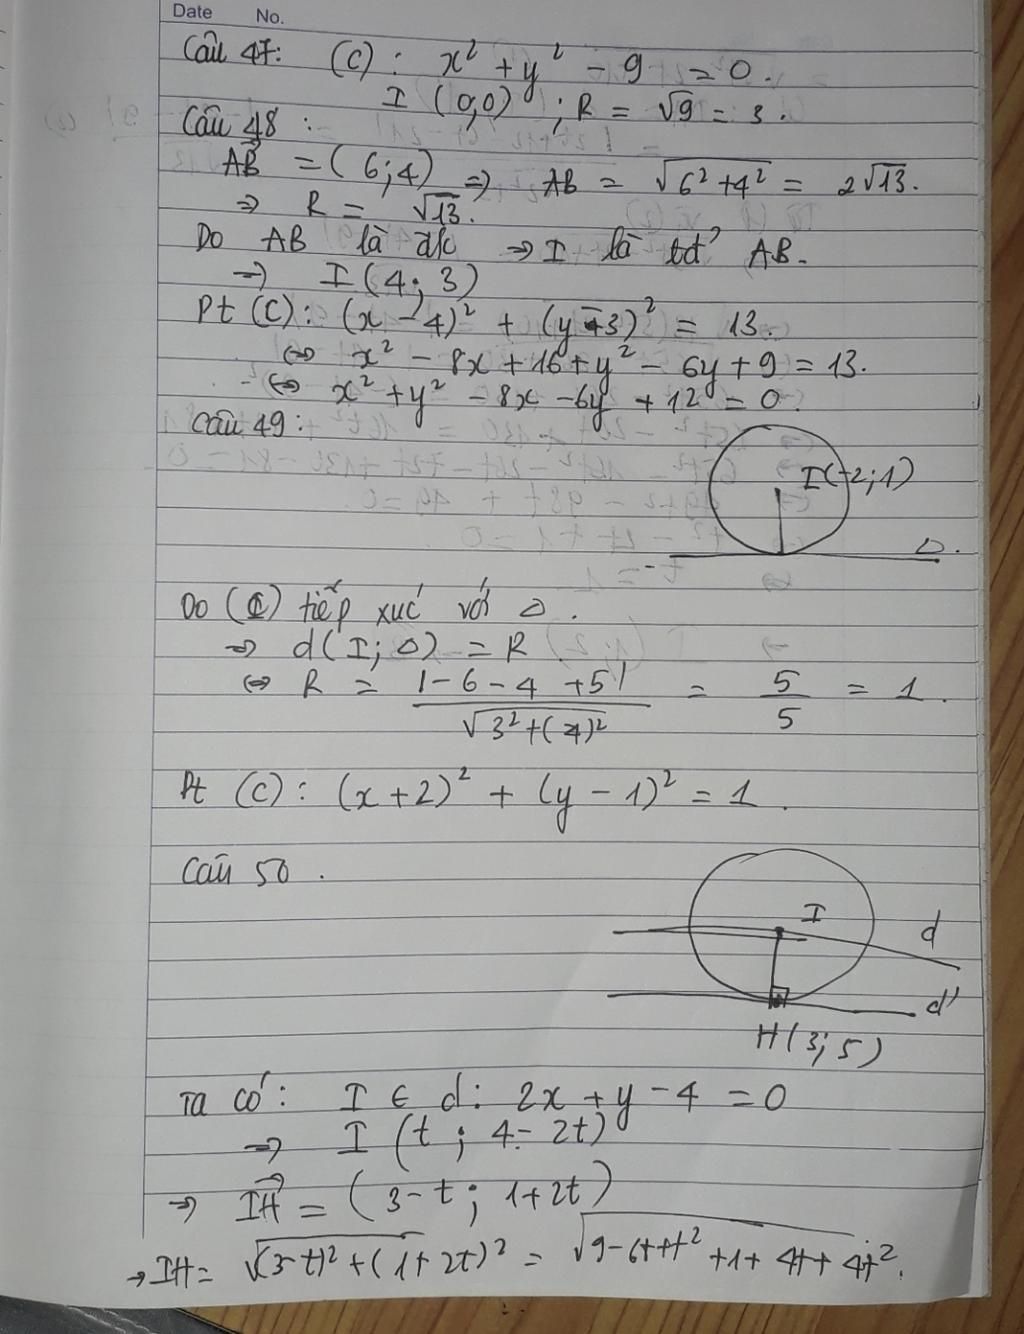 Date No.
Câu 47: (C): x² + y² - 9 = 0.
I (0,0) ; R = √9 = 3.
Câu 48 :
AB = (6;4) => AB = √6²+4² = 2√13.
=> R = √13.
Do AB là đk => I là tđ² AB.
=> I(4; 3)
Pt (C): (x - 4)² + (y - 3)² = 13.
<=> x² - 8x + 16 + y² - 6y + 9 = 13.
<=> x² + y² - 8x - 6y + 12 = 0.
Câu 49:
I(-2;1)
Δ.
Do (C) tiếp xúc với Δ.
=> d(I; Δ) = R
<=> R = |-6-4+5| / √3²+(4)² = 5/5 = 1.
Pt (C): (x+2)² + (y-1)² = 1.
Câu 50.
I
d
d'
H(3;5)
Ta có: I ∈ d: 2x + y - 4 = 0
=> I (t; 4-2t)
=> IH = (3-t; 1+2t)
=> IH = √(3-t)² + (1+2t)² = √9-6t+t²+1+4t+4t².